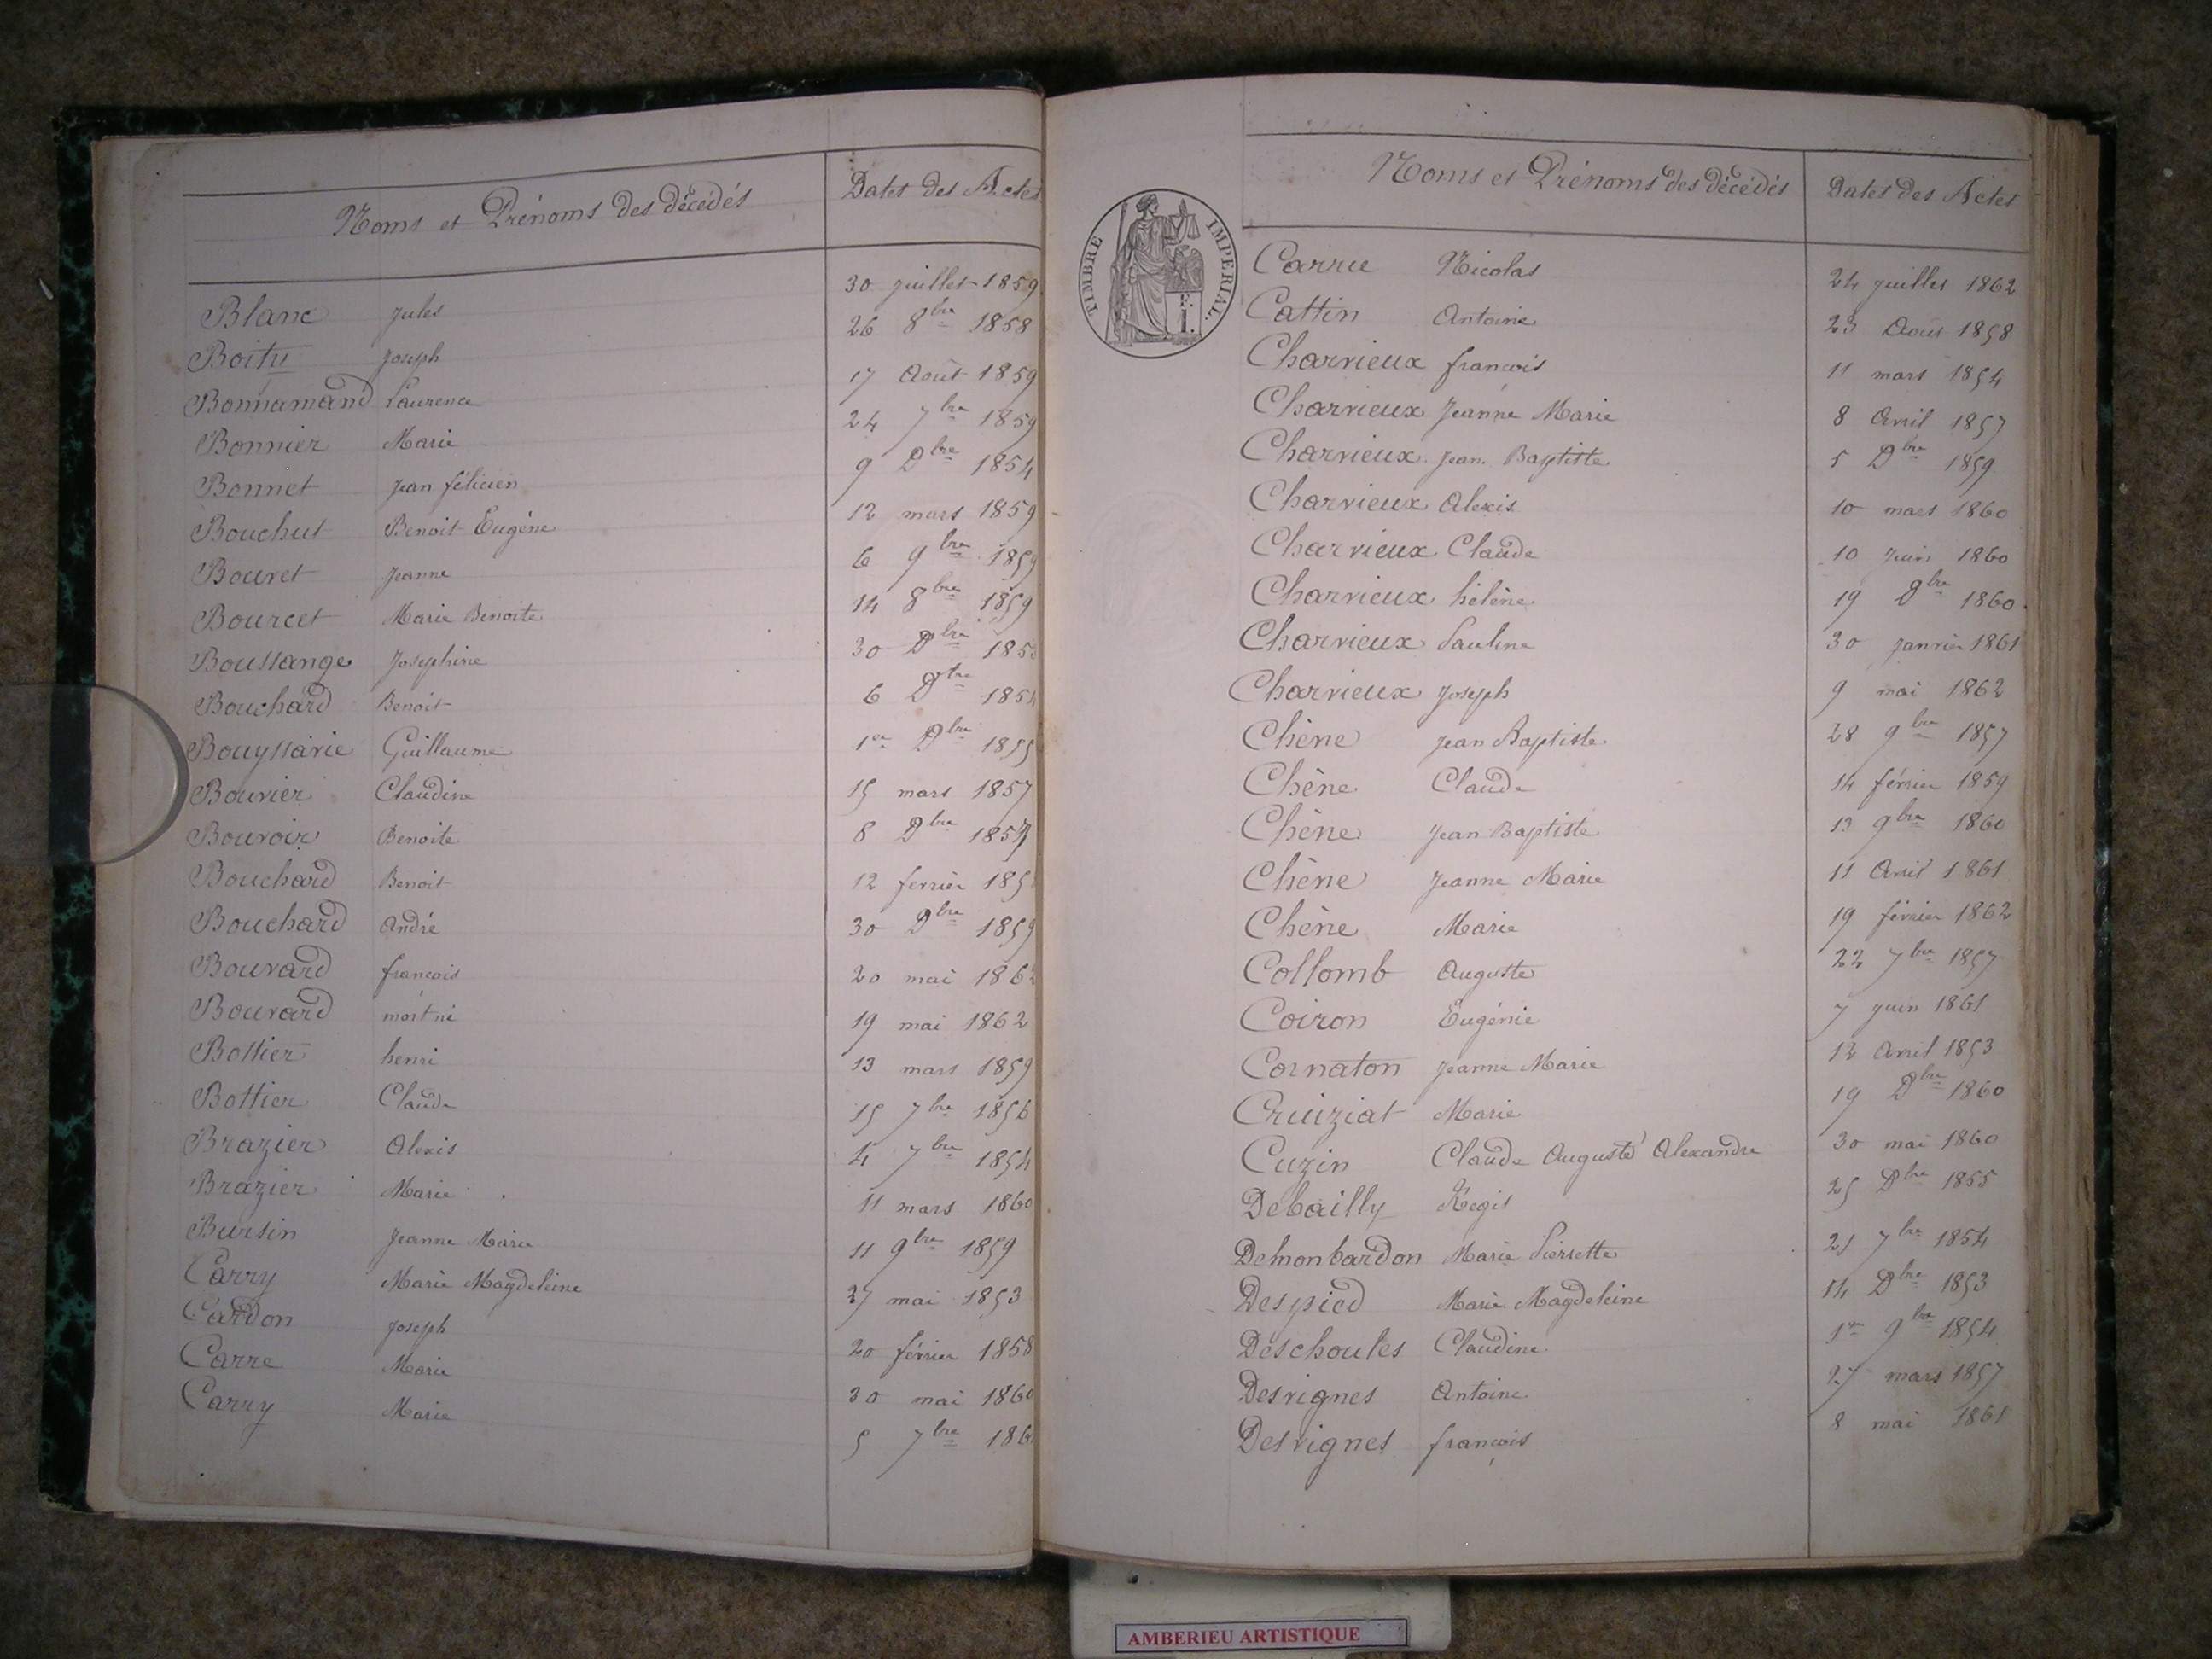 Noms et Prénoms des décédés Dates des Actes
Blanc Jules 30 juillet 1859
Boitu Joseph 26 8bre 1858
Bonnamand Laurence 17 Août 1859
Bonnier Marie 24 7bre 1859
Bonnet Jean félicien 9 Dbre 1854
Bouchut Benoit Eugène 12 mars 1859
Bouvet Jeanne 6 9bre 1859
Bourcet Marie Benoite 14 8bre 1859
Boussange Josephine 30 Dbre 185
Bouchard Benoit 6 Dbre 185
Bouyssarie Guillaume 1er Dbre 1855
Bouvier Claudine 15 mars 1857
Bouvoir Benoite 8 Dbre 1857
Bouchard Benoit 12 fevrier 185
Bouchard André 30 Dbre 1859
Bouvard francois 20 mai 186
Bouvard mort né 19 mai 1862
Bottier henri 13 mars 1859
Bottier Claude 15 7bre 1856
Brazier Alexis 4 7bre 1854
Brazier Marie 11 mars 1860
Bursin Jeanne Marie 11 9bre 1859
Carry Marie Magdeleine 27 mai 1853
Cardon Joseph 20 février 1858
Carre Marie 30 mai 1860
Carry Marie 5 7bre 186
TIMBRE IMPERIAL.
F.
I.
Noms et Prénoms des décédés Dates des Actes
Carrue Nicolas 24 juillet 1862
Cattin Antoine 23 Août 1858
Charvieux francois 11 mars 1854
Charvieux Jeanne Marie 8 Avril 1857
Charvieux Jean Baptiste 5 Dbre 1859
Charvieux Alexis 10 mars 1860
Charvieux Claude 10 Juin 1860
Charvieux hélène 19 Dbre 1860
Charvieux Pauline 30 janvier 1861
Charvieux Joseph 9 mai 1862
Chêne Jean Baptiste 28 9bre 1857
Chêne Claude 14 février 1859
Chêne Jean Baptiste 13 9bre 1860
Chêne Jeanne Marie 11 Avril 1861
Chêne Marie 19 février 1862
Collomb Auguste 22 7bre 1857
Coiron Eugénie 7 juin 1861
Cornaton Jeanne Marie 12 Avril 1853
Cruiziat Marie 19 Dbre 1860
Cuzin Claude Auguste Alexandre 30 mai 1860
Debailly Régis 25 Dbre 1855
Demonbardon Marie Pierrette 25 7bre 1854
Despied Marie Magdeleine 14 Dbre 1853
Deschoules Claudine 1er 9bre 1854
Desvignes Antoine 27 mars 1857
Desvignes françois 8 mai 1861
AMBERIEU ARTISTIQUE